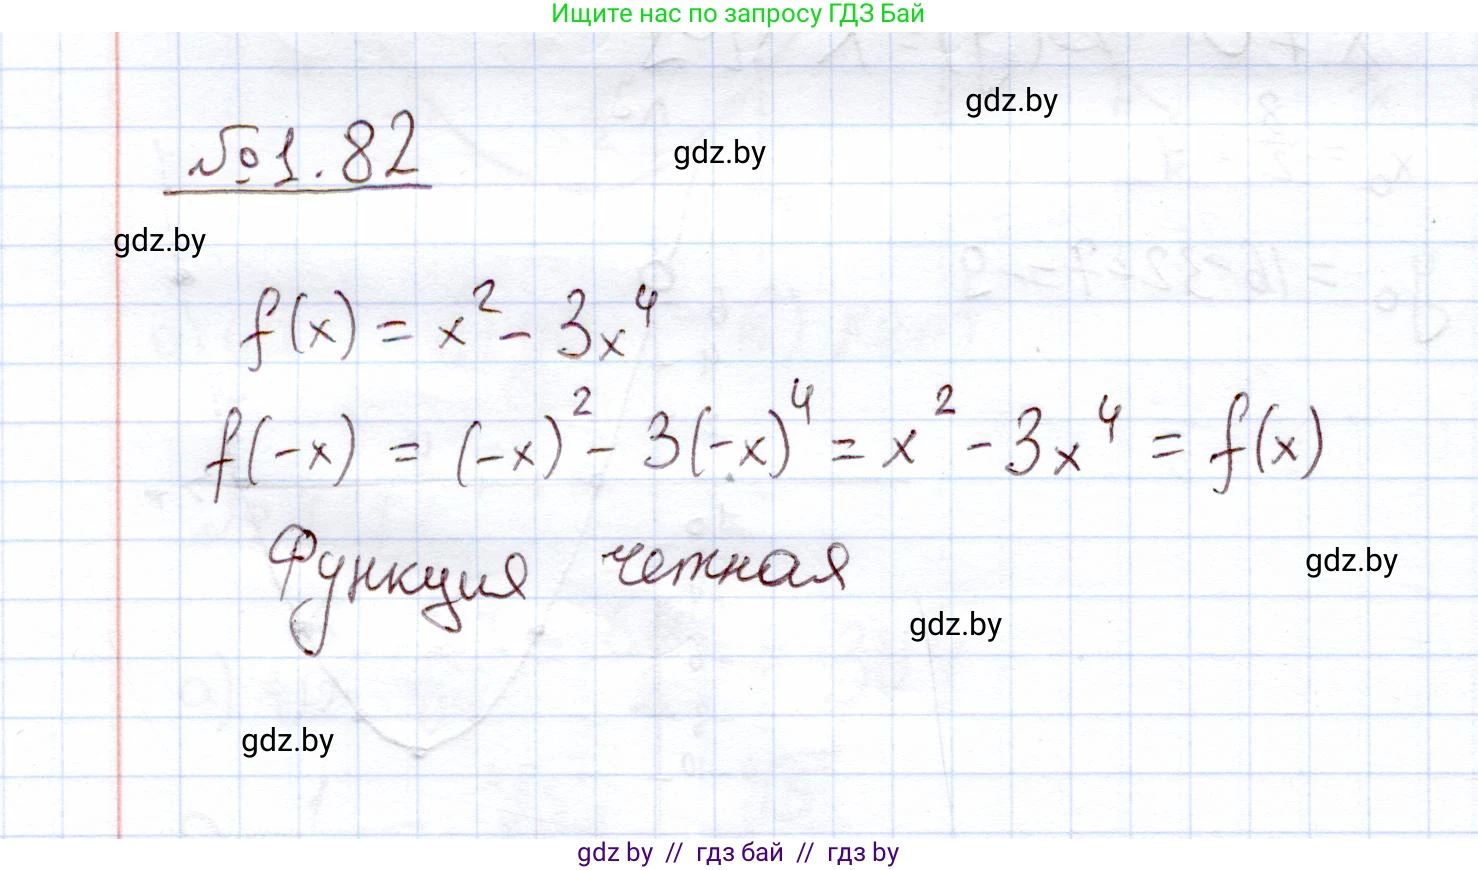 Ищите нас по запросу ГДЗ Бай
gdz.by
gdz.by
№1.82
gdz.by
f(x) = x² - 3x⁴
f(-x) = (-x)² - 3(-x)⁴ = x² - 3x⁴ = f(x)
Функция четная
gdz.by
gdz.by
gdz.by
gdz by // гдз бай // гдз by